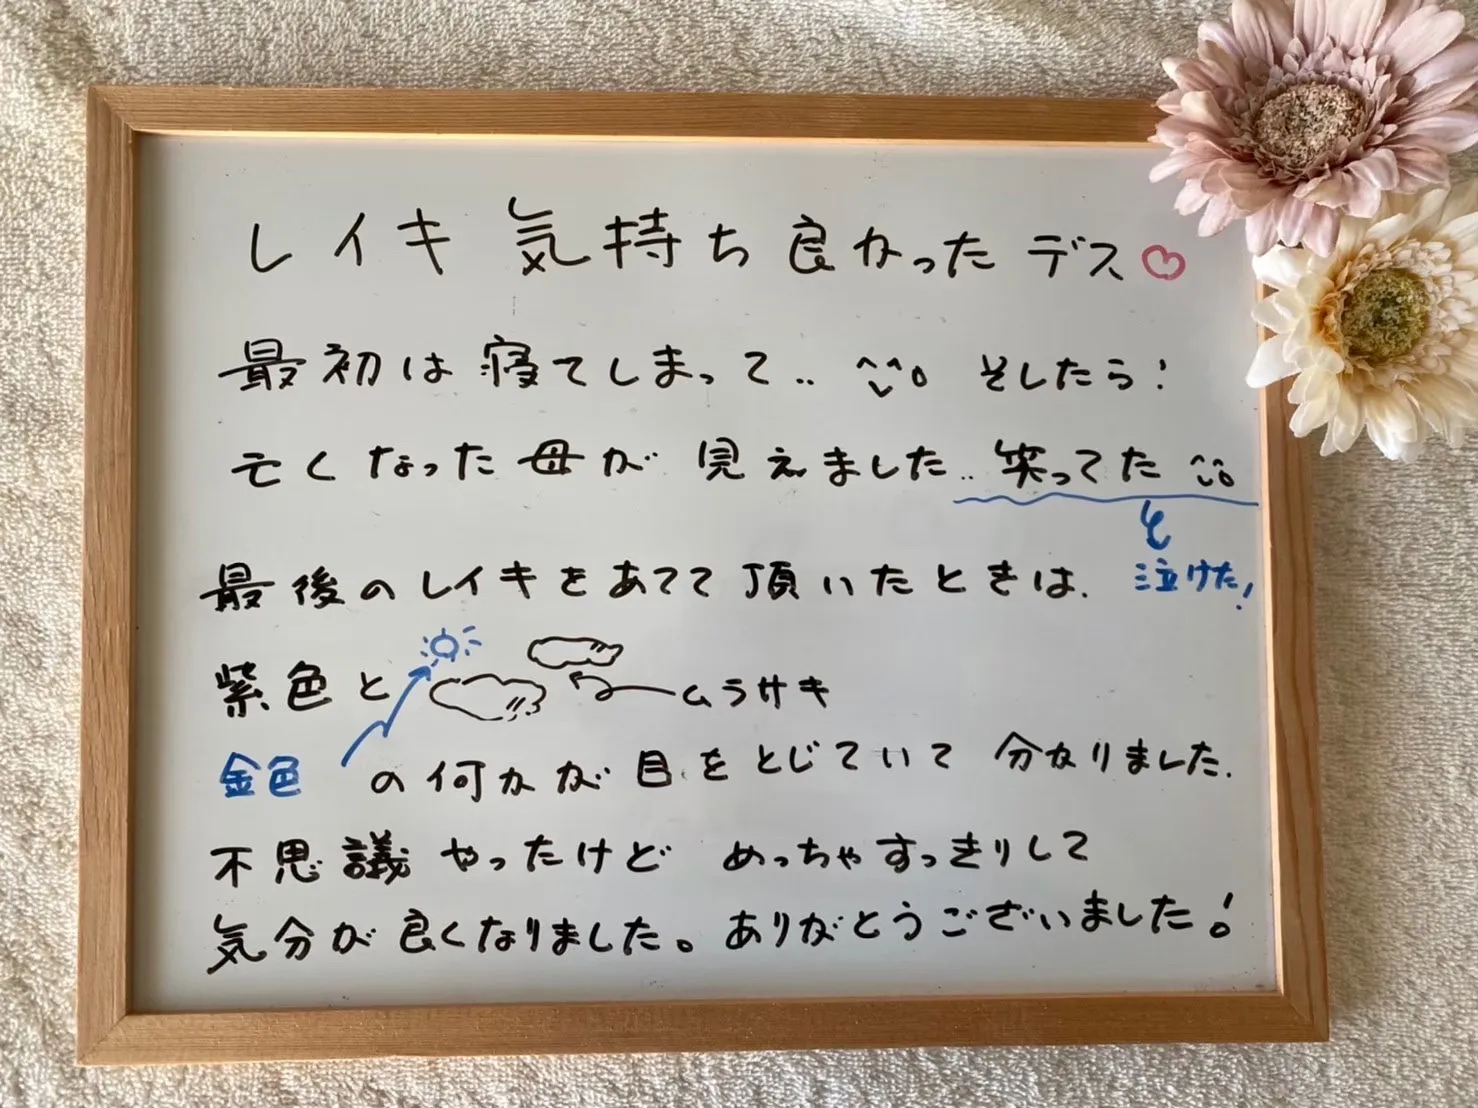 レイキ 気持ち良かったデス♡
最初は寝てしまって.. ^^。 そしたら!
亡くなった母が 見えました..笑ってた ^^。
泣けた!
最後のレイキをあてて頂いたときは.
紫色と
ムラサキ
金色 の何かが目をとじていて 分かりました.
不思議やったけど めっちゃすっきりして
気分が良くなりました。ありがとうございました!